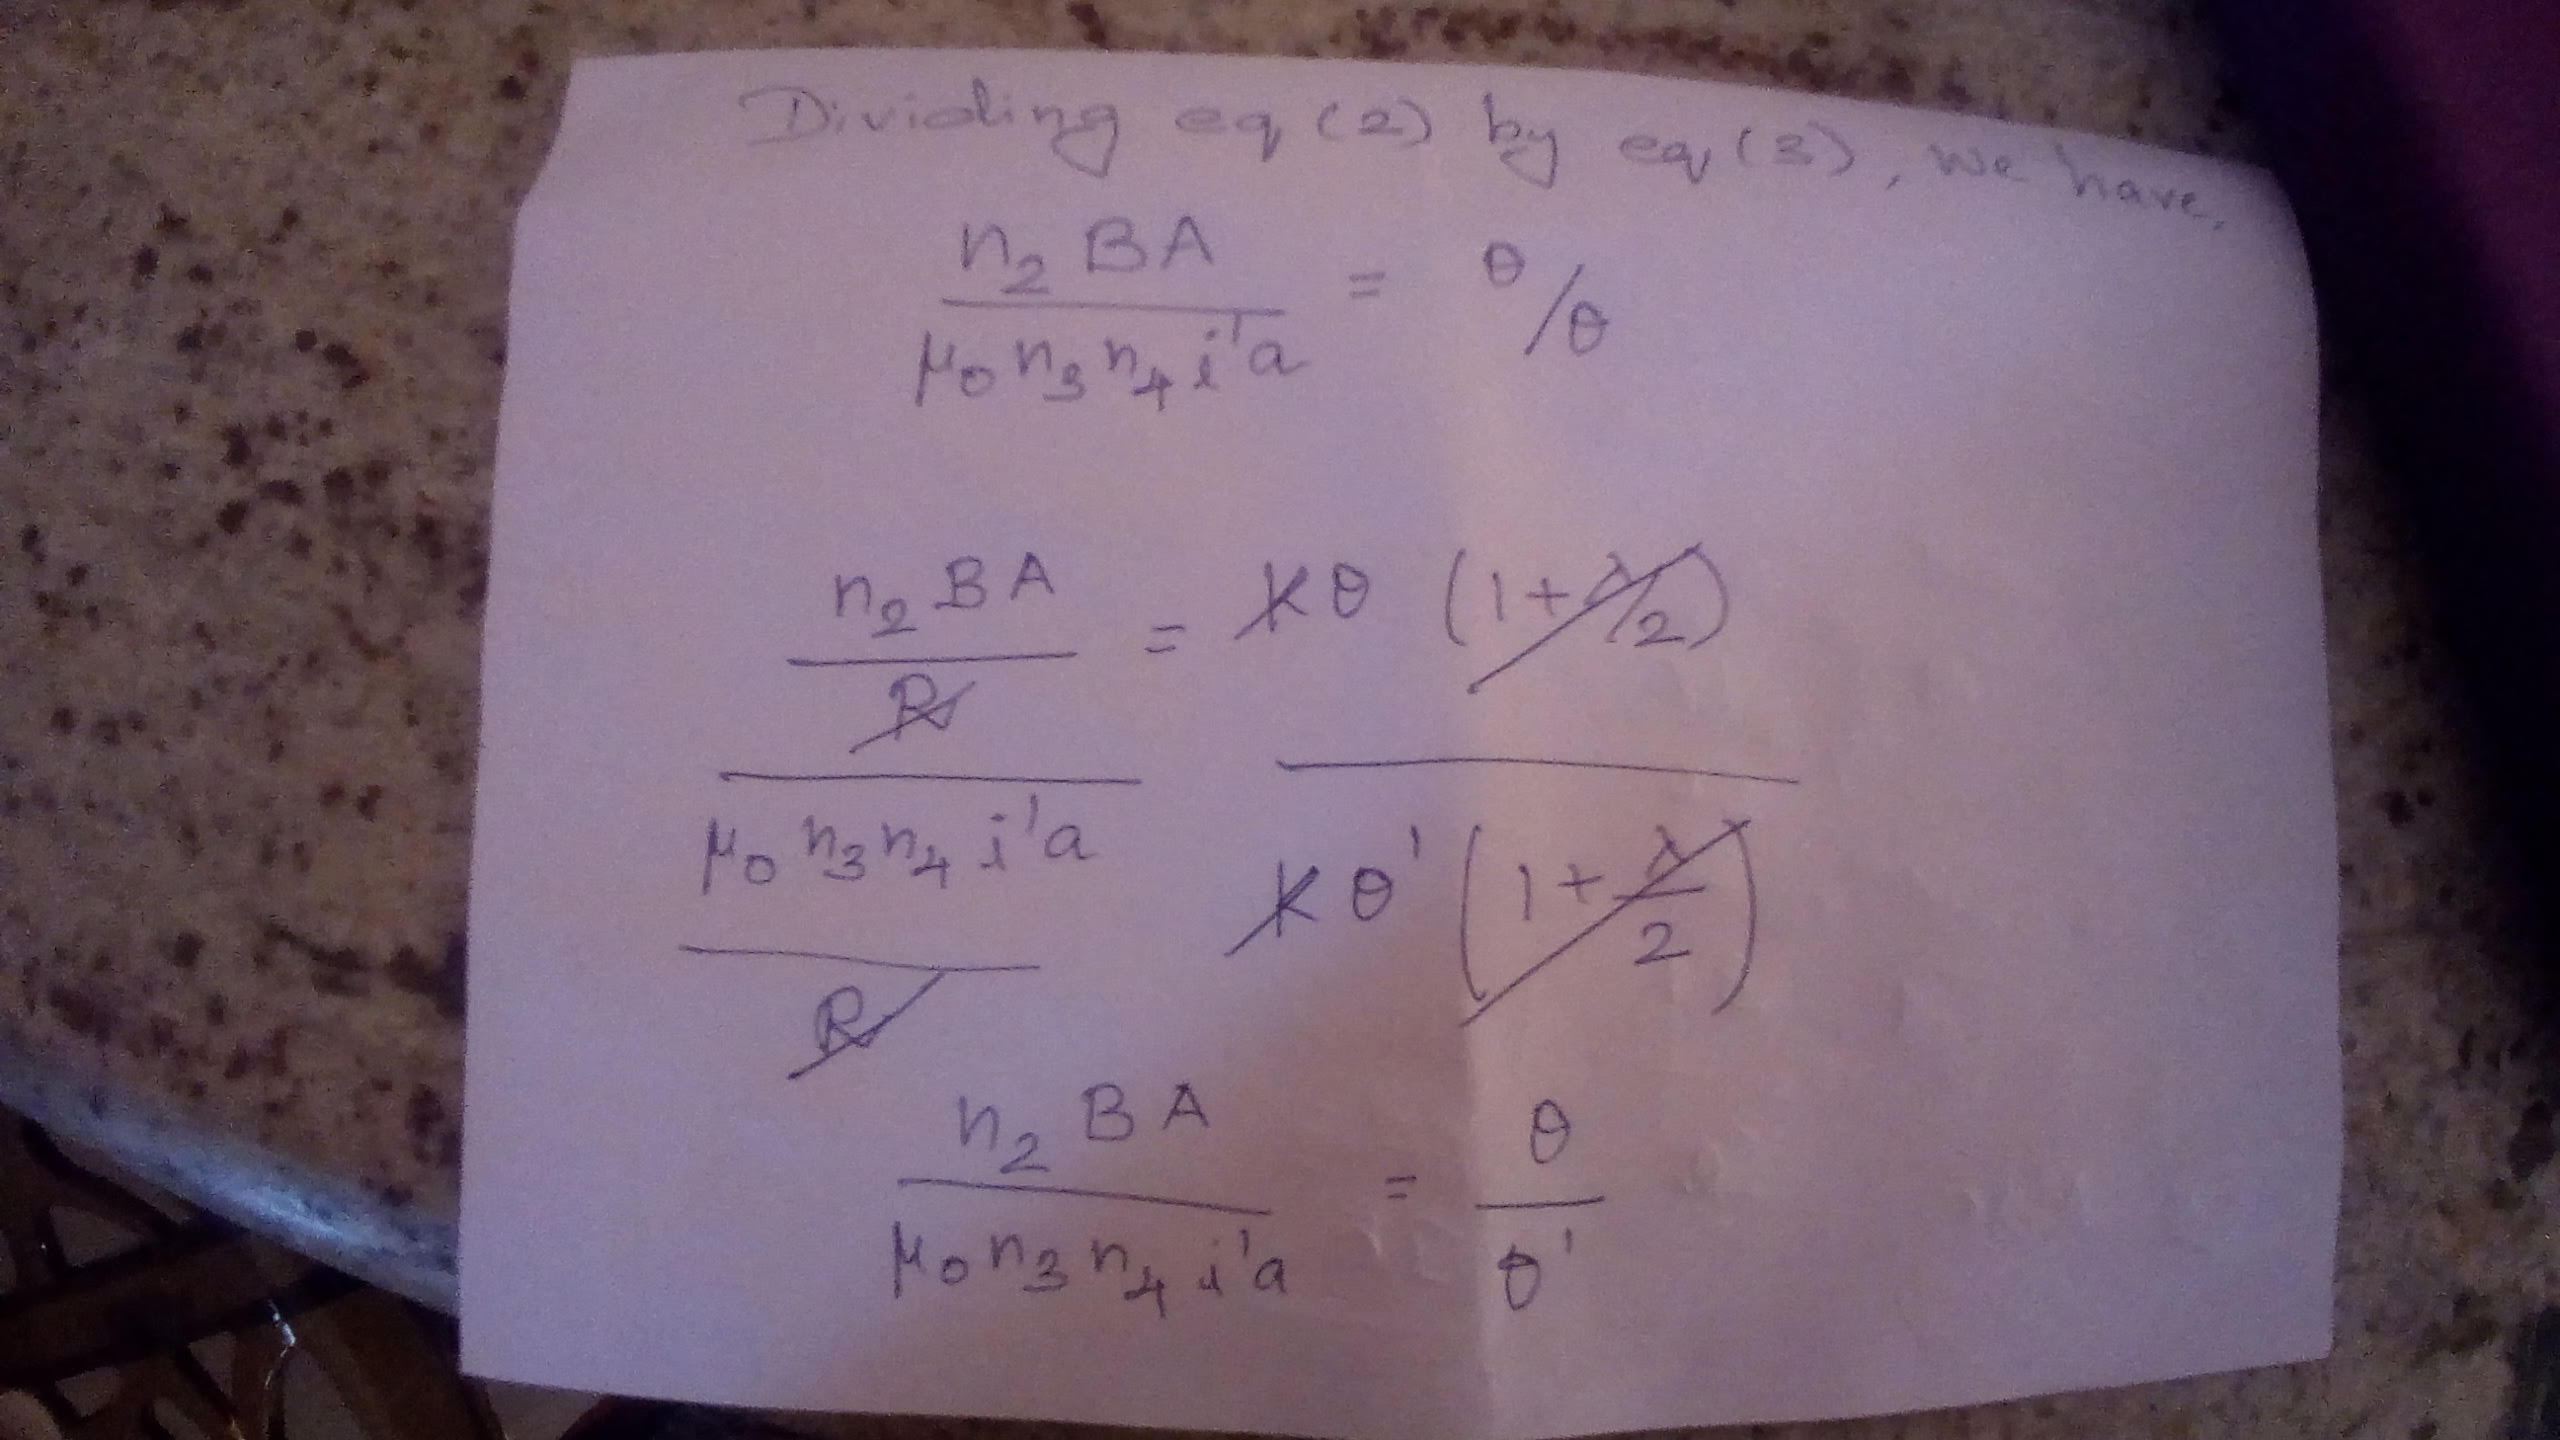 Dividing eq (2) by eq (3), we have,
n₂ B A / μ₀ n₃ n₄ i'a = θ/θ
(n₂ B A / R) / (μ₀ n₃ n₄ i'a / R) = K θ (1 + λ/2) / K θ' (1 + λ/2)
n₂ B A / μ₀ n₃ n₄ i'a = θ / θ'